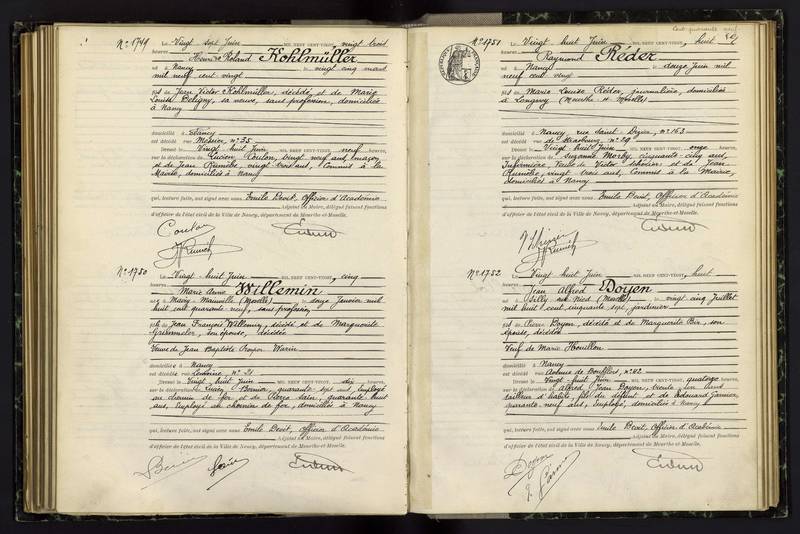 N° 1749
Le Vingt sept Juin MIL NEUF CENT-VINGT, vingt trois
heures, Henri Roland Kohlmüller
est né à Nancy le vingt cinq mars
mil neuf cent vingt
fils de Jean Victor Kohlmüller, décédé et de Marie
Louise Beligny, sa veuve, sans profession, domiciliée
à Nancy
domicilié à Nancy
est décédé rue n° 35
Dressé le Vingt huit Juin MIL NEUF CENT-VINGT, neuf heures,
sur la déclaration de Lucien Coulon, vingt neuf ans, maçon
et de Jean Runiche, vingt trois ans, Commis à la
Mairie, domiciliés à Nancy
qui, lecture faite, ont signé avec nous Emile Benit, Officier d'Académie
Adjoint au Maire, délégué faisant fonctions
d'officier de l'état civil de la Ville de Nancy, département de Meurthe-et-Moselle.
Coulon
N° 1750
Le Vingt huit Juin MIL NEUF CENT-VINGT, cinq
heures, Marie Anne Willemin
est née à (Moselle) le douze janvier mil
huit cent quarante neuf, sans profession
fille de Jean François Willemin, décédé et de Marguerite
son épouse, décédée
Veuve de Jean Baptiste Prosper Warin
domiciliée à Nancy
est décédée rue Lemoine, n° 21
Dressé le Vingt huit Juin MIL NEUF CENT-VINGT, dix heures,
sur la déclaration de quarante sept ans, employé
au chemin de fer et de quarante huit
ans, employé au chemin de fer, domiciliés à Nancy
qui, lecture faite, ont signé avec nous Emile Benit, Officier d'Académie
Adjoint au Maire, délégué faisant fonctions
d'officier de l'état civil de la Ville de Nancy, département de Meurthe-et-Moselle.
N° 1751
Le Vingt huit Juin MIL NEUF CENT-VINGT, huit
heures, Raymond Réder
est né à Nancy le douze Juin mil
neuf cent vingt
fils de Marie Louise Réder, journalière, domiciliée
à Longwy (Meurthe & Moselle)
domicilié à Nancy rue Saint Dizier, n° 163
est décédé rue de Strasbourg, n° 29
Dressé le Vingt huit Juin MIL NEUF CENT-VINGT, onze heures,
sur la déclaration de Suzanne cinquante cinq ans,
infirmière, Veuve de Victor et de Jean
Runiche, vingt trois ans, Commis à la Mairie,
domiciliés à Nancy
qui, lecture faite, ont signé avec nous Emile Benit, Officier d'Académie
Adjoint au Maire, délégué faisant fonctions
d'officier de l'état civil de la Ville de Nancy, département de Meurthe-et-Moselle.
N° 1752
Le Vingt huit Juin MIL NEUF CENT-VINGT, huit
heures, Jean Alfred Doyen
est né à Silly sur Nied (Moselle) le vingt cinq Juillet
mil huit cent cinquante sept, jardinier
fils de Pierre Doyen, décédé et de Marguerite son
épouse, décédée
Veuf de Marie Houillon
domicilié à Nancy
est décédé Avenue de Boufflers, n° 42
Dressé le Vingt huit Juin MIL NEUF CENT-VINGT, quatorze heures,
sur la déclaration de Alfred Jean Doyen, trente un ans
tailleur d'habits, fils du défunt et de Edouard Garnier,
quarante neuf ans, employé, domiciliés à Nancy
qui, lecture faite, ont signé avec nous Emile Benit, Officier d'Académie
Adjoint au Maire, délégué faisant fonctions
d'officier de l'état civil de la Ville de Nancy, département de Meurthe-et-Moselle.
Doyen